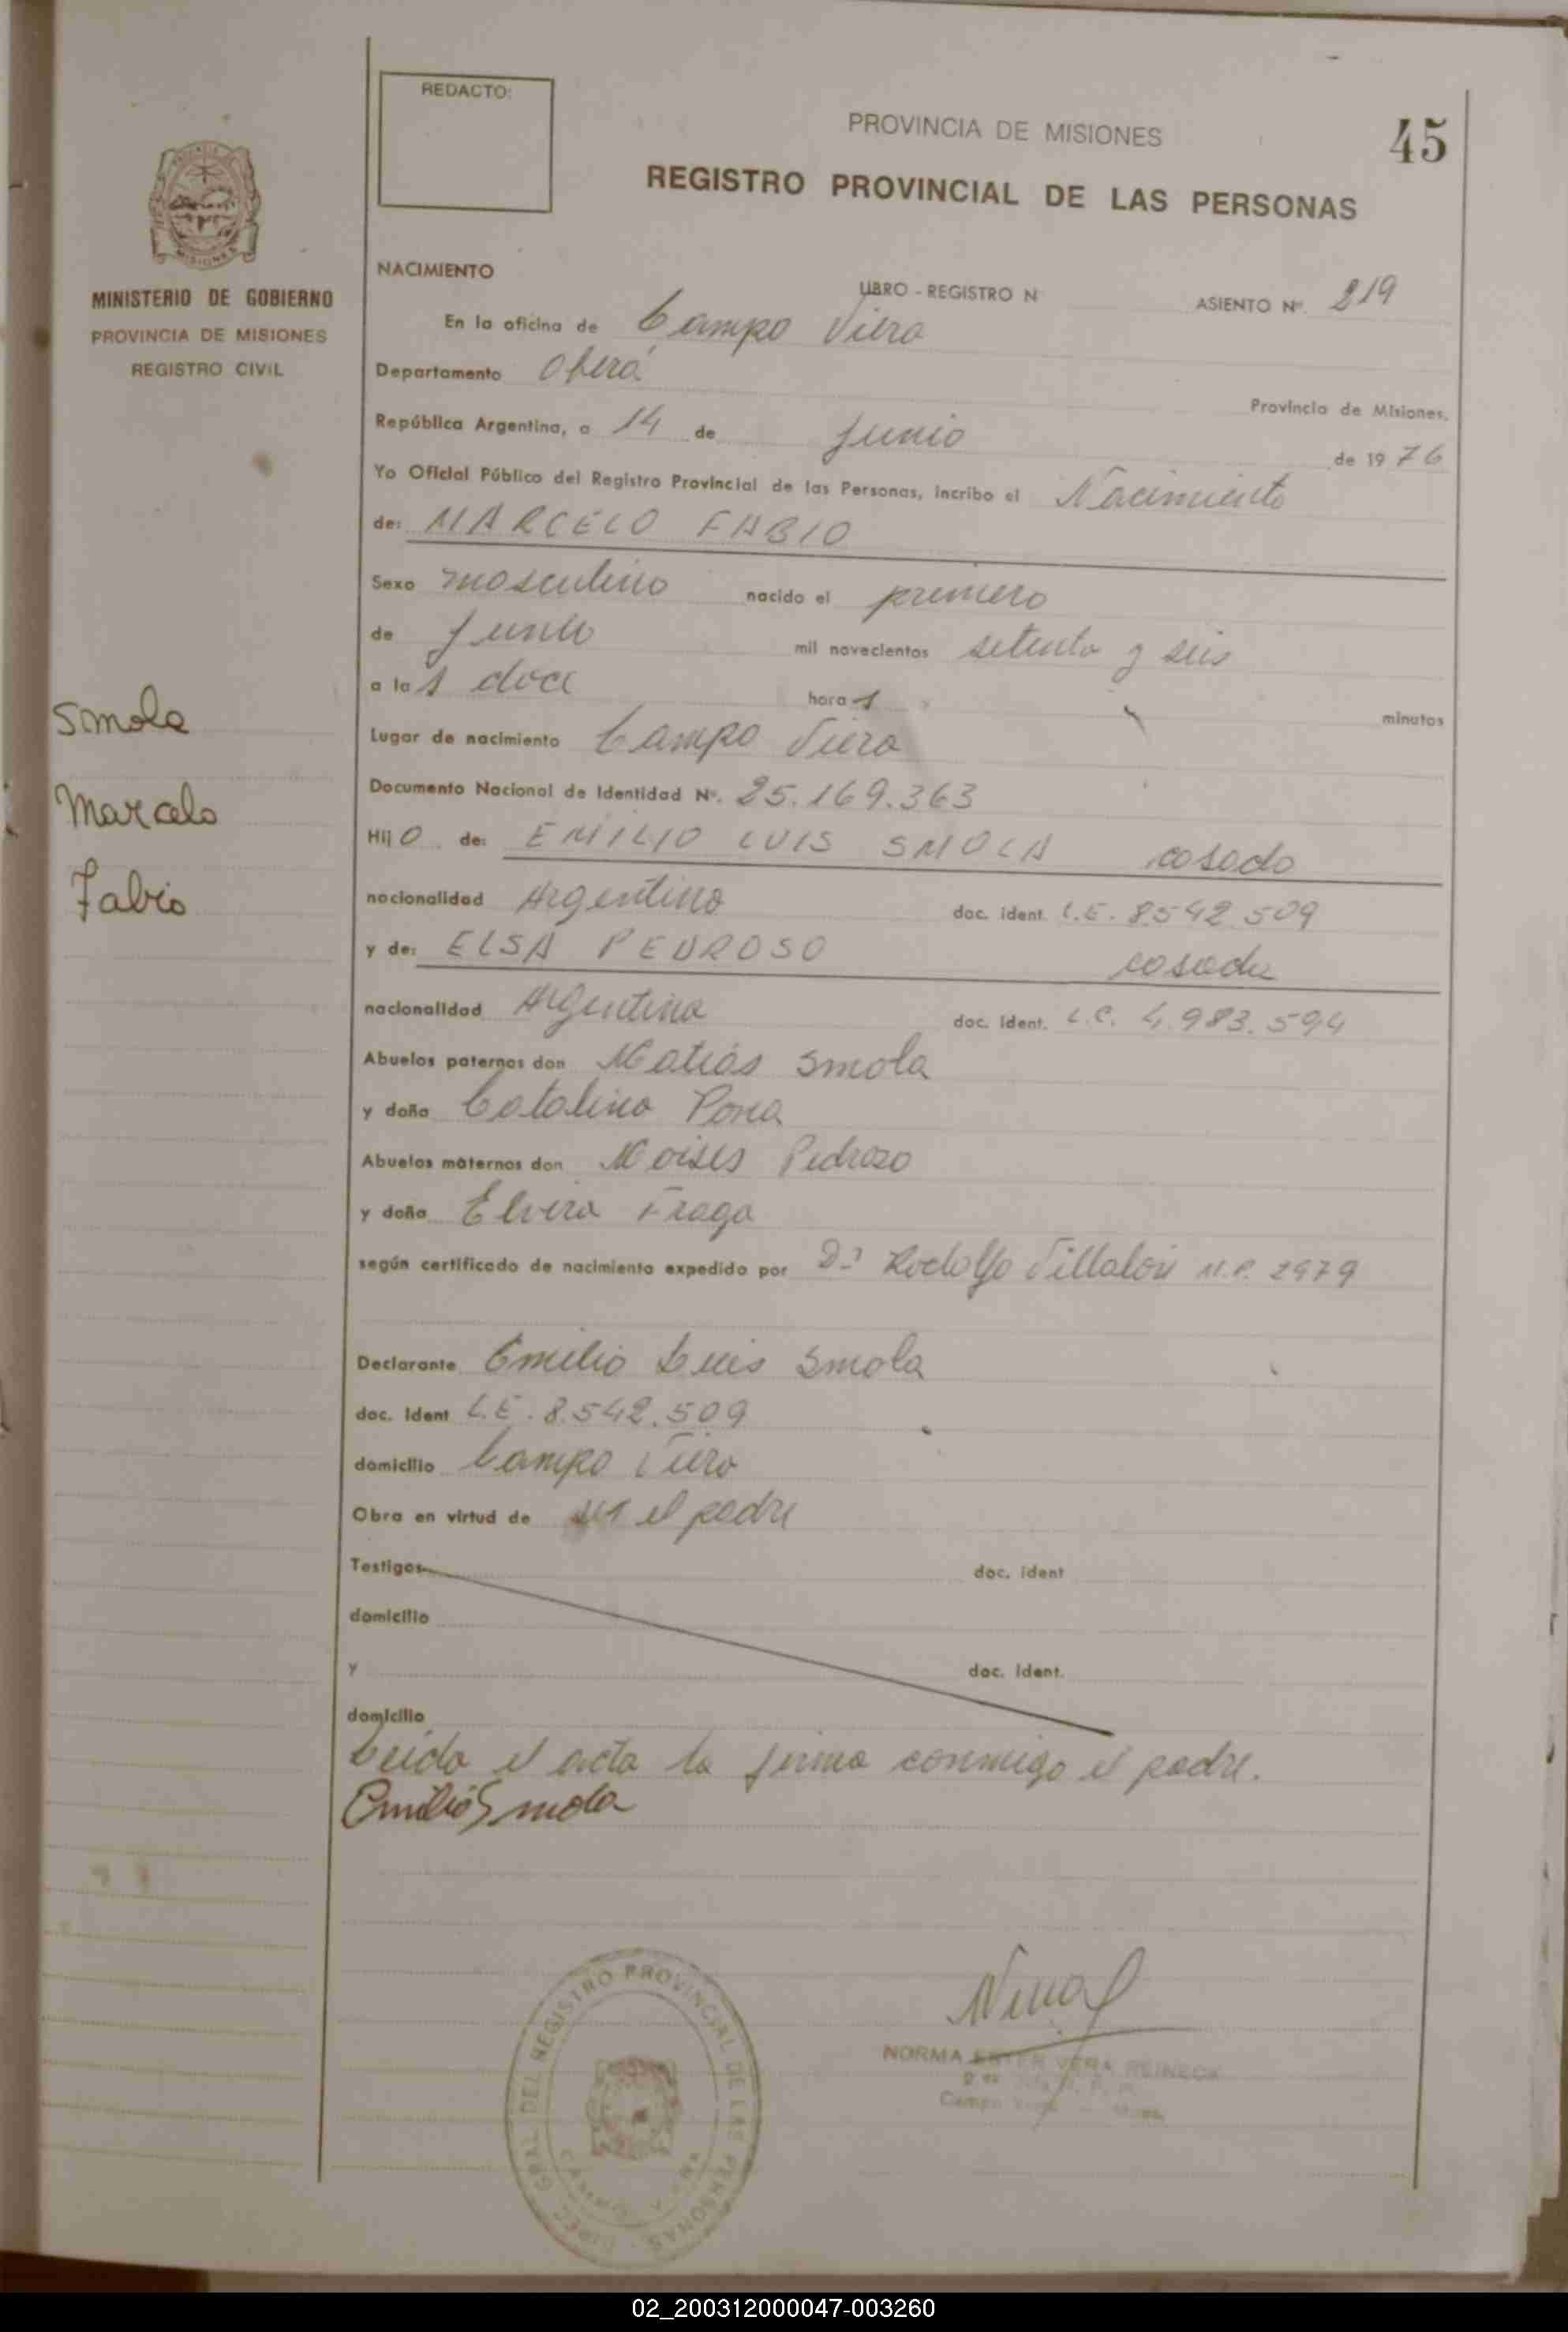 REDACTO:
PROVINCIA DE MISIONES
45
REGISTRO PROVINCIAL DE LAS PERSONAS
MINISTERIO DE GOBIERNO
PROVINCIA DE MISIONES
REGISTRO CIVIL
NACIMIENTO
LIBRO - REGISTRO N
ASIENTO Nº. 219
En la oficina de Campo Viera
Departamento Oberá
Provincia de Misiones,
República Argentina, a 14 de Junio de 1976
Yo Oficial Público del Registro Provincial de las Personas, incribo el Nacimiento
de: MARCELO FABIO
Sexo masculino nacido el primero
de Junio mil novecientos setenta y seis
a las doce horas minutos
Smola
Marcelo
Fabio
Lugar de nacimiento Campo Viera
Documento Nacional de Identidad Nº. 25.169.363
Hijo de: EMILIO LUIS SMOLA casado
nacionalidad Argentino doc. ident. L.E. 8.542.509
y de: ELSA PEDROSO casada
nacionalidad Argentina doc. ident. L.C. 4.983.594
Abuelos paternos don Matias Smola
y doña Catalina
Abuelos maternos don Moises Pedrozo
y doña Elvira Fraga
según certificado de nacimiento expedido por Dr Rodolfo Villalón M.P. 2979
Declarante Emilio Luis Smola
doc. ident L.E. 8.542.509
domicilio Campo Viera
Obra en virtud de ser el padre
Testigos doc. ident
domicilio
y doc. ident.
domicilio
Leida el acta la firma conmigo el padre.
Emilio Smola
DIREC. GRAL DEL REGISTRO PROVINCIAL DE LAS PERSONAS
NORMA ESTER VERA REINECK
Campo Viera
02_200312000047-003260